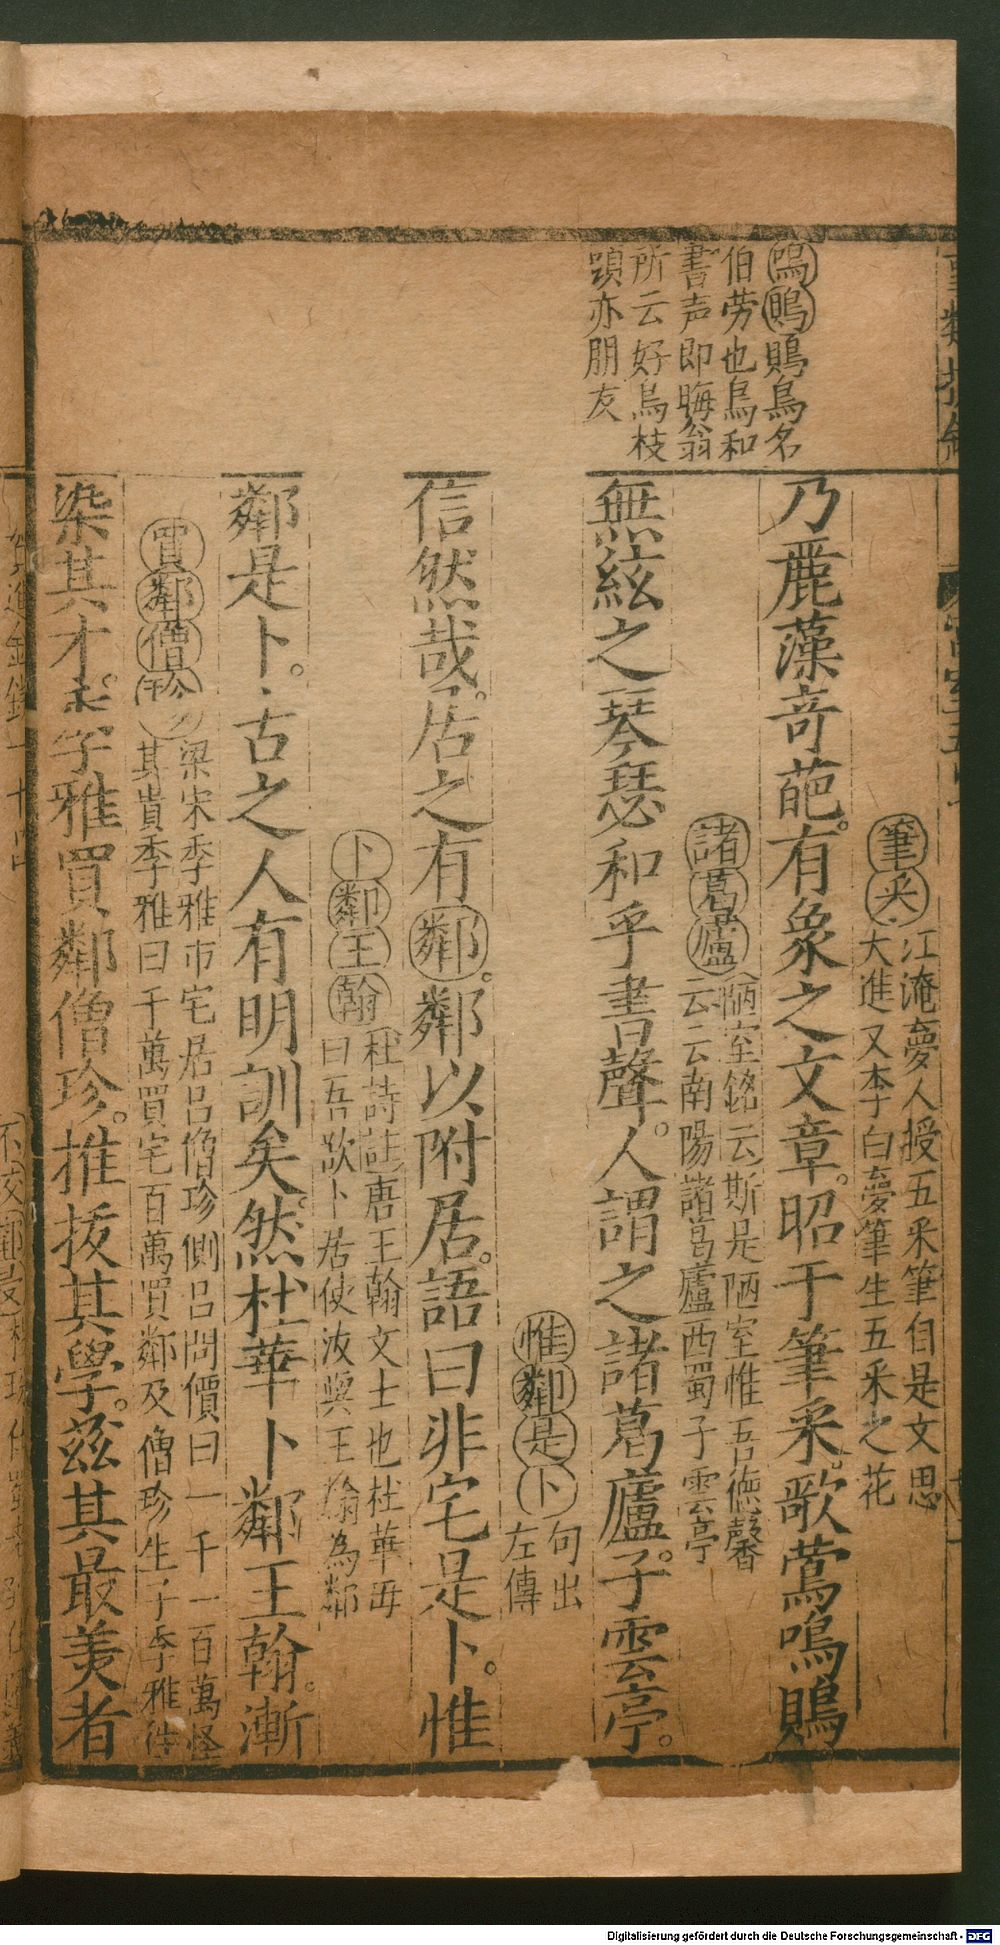 鳴鵙鵙鳥名
伯劳也鳥和
書声即晦翁
所云好鳥枝
頭亦朋友
筆采
江淹夢人授五采筆自是文思
大進又李白夢筆生五采之花
乃麗藻奇葩。有象之文章。昭于筆采。歌鶯鳴鵙
諸葛廬
陋室銘云斯是陋室惟吾德馨
云云南陽諸葛蘆西蜀子雲亭
無絃之琴瑟和乎書聲。人謂之諸葛廬。子雲亭。
惟鄰是卜
句出
左傳
信然哉。居之有鄰。鄰以附居。語曰非宅是卜。惟
卜鄰王翰
杜詩註唐王翰文士也杜華母
曰吾欲卜居使汝與王翰為鄰
鄰是卜。古之人有明訓矣。然杜華卜鄰王翰。漸
買鄰僧珍
梁宋季雅市宅居吕僧珍側吕問價曰一千一百萬怪
其貴季雅曰千萬買宅百萬買鄰及僧珍生子季雅
染其才。季雅買鄰僧珍。推拔其學。兹其最美者
Digitalisierung gefördert durch die Deutsche Forschungsgemeinschaft - DFG